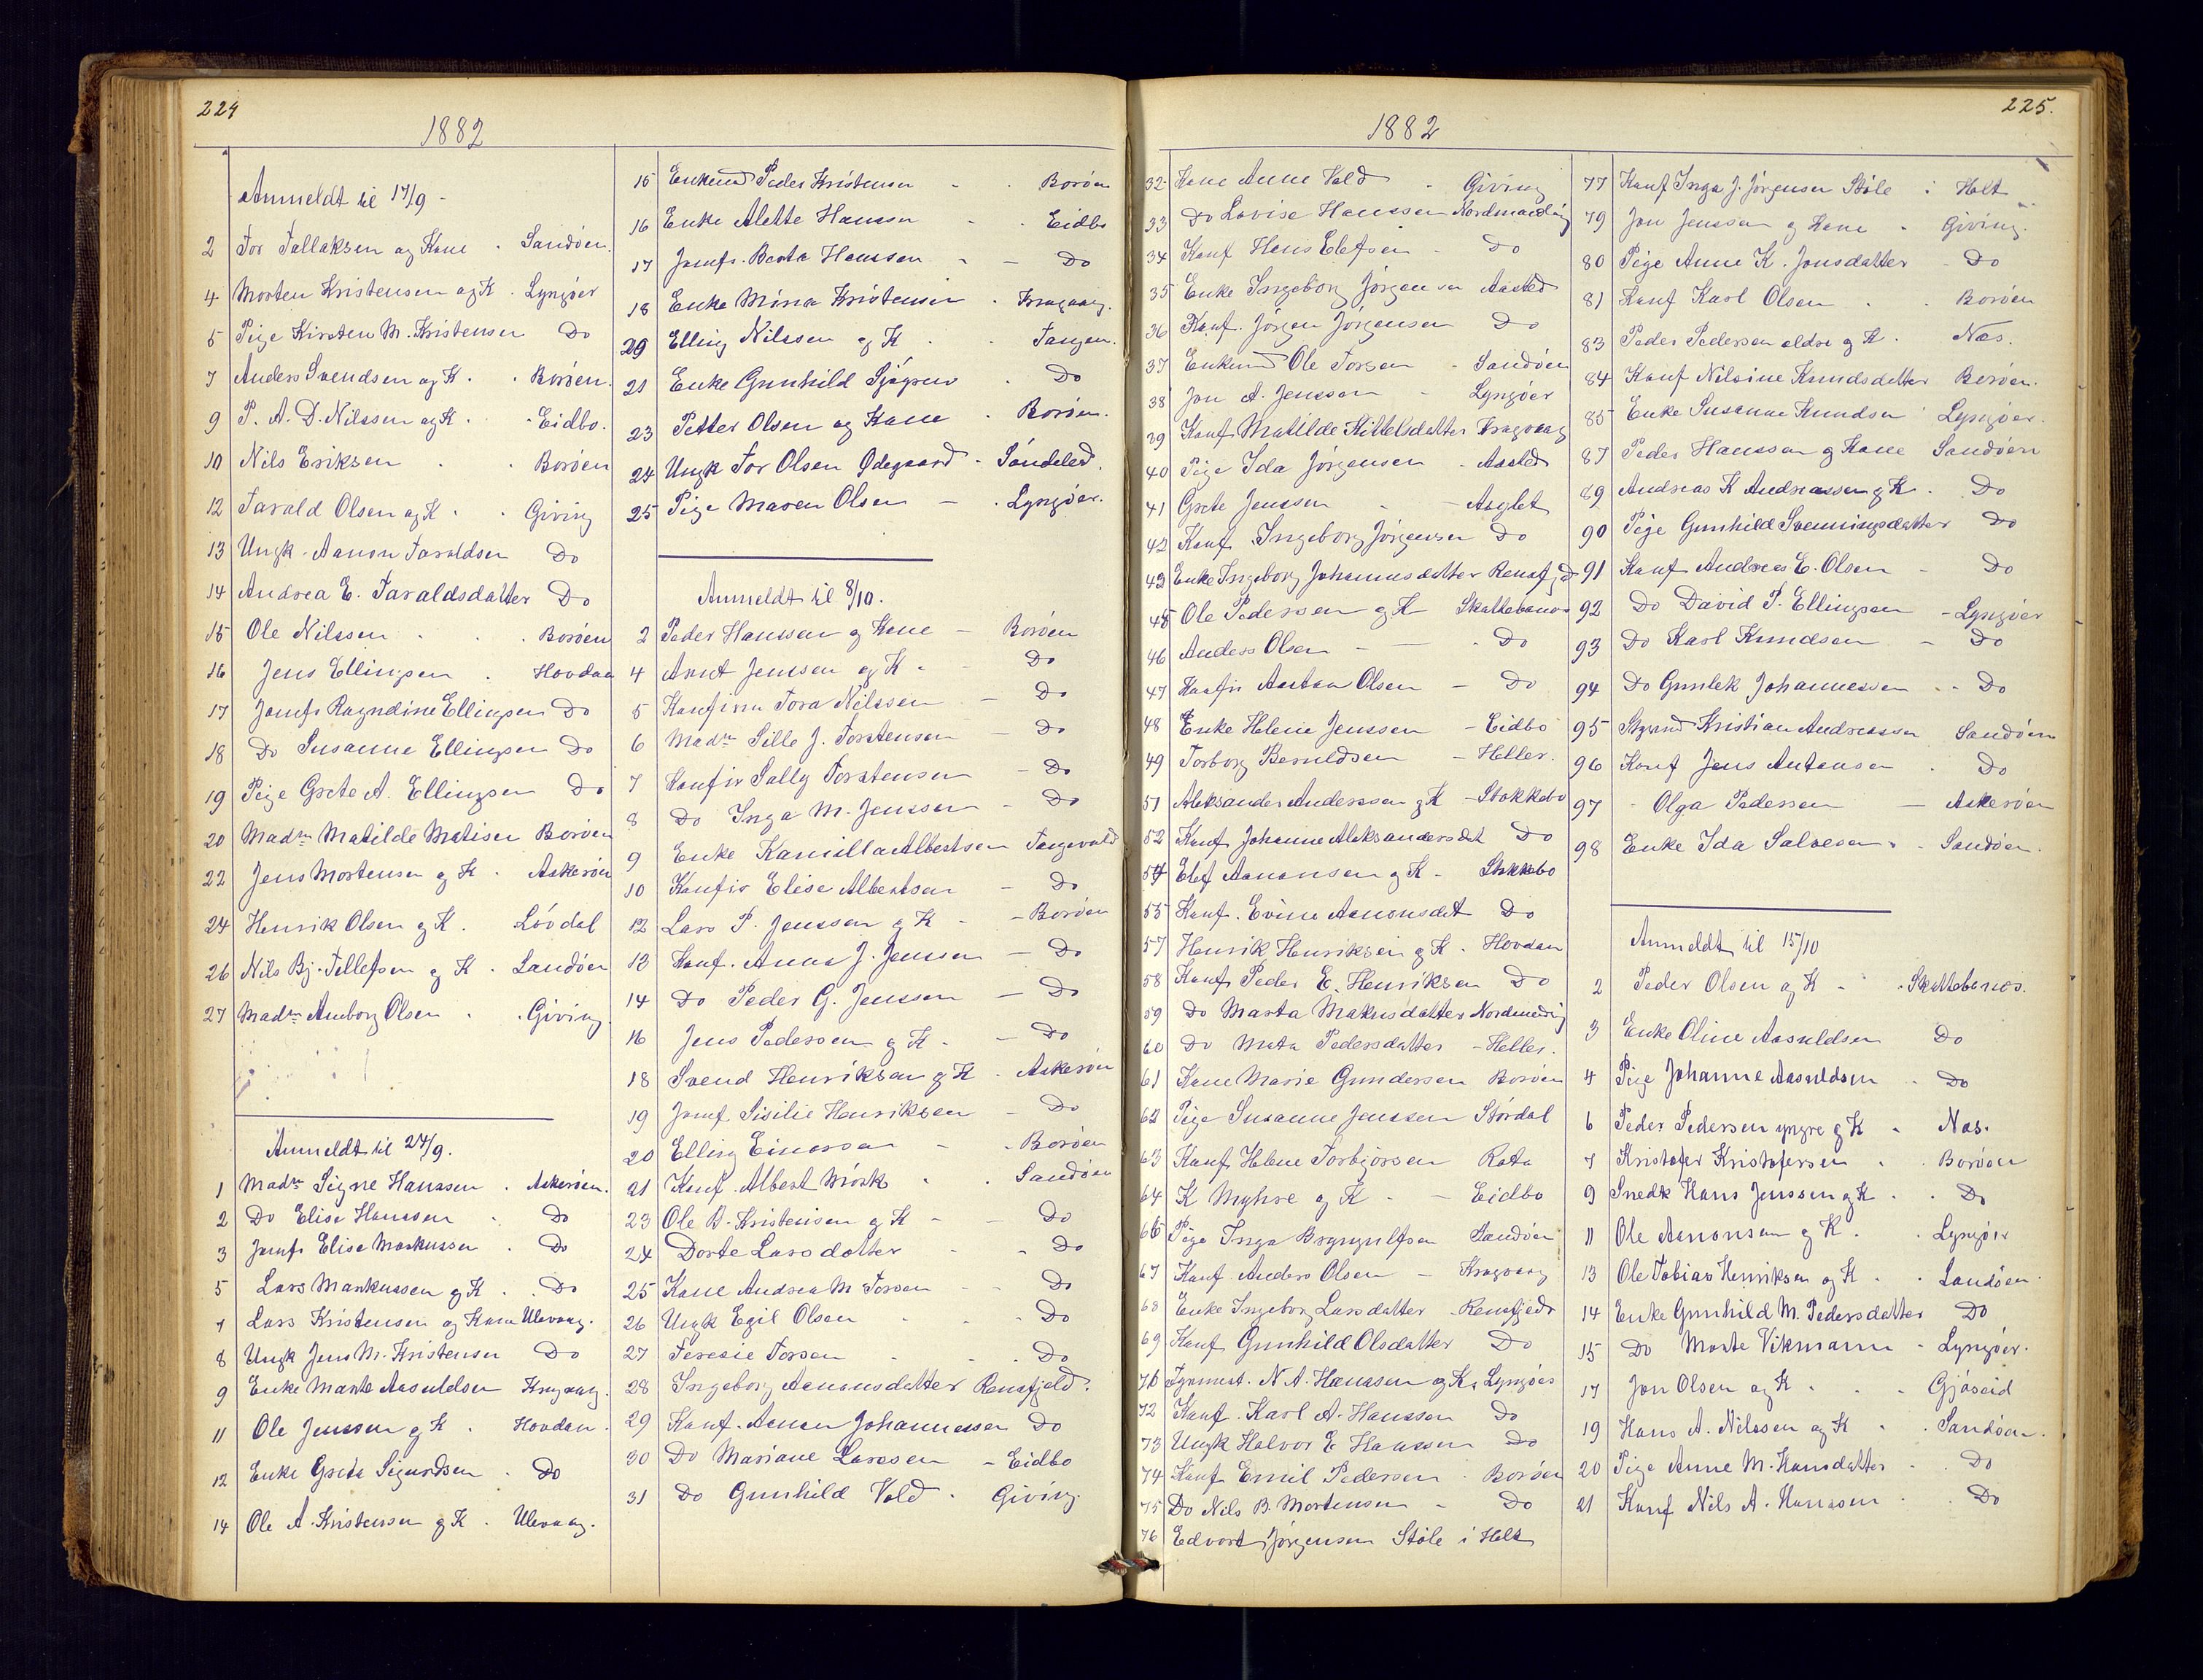 224
1882
Anmeldt til 17/9 -
2 Tor Tallaksen og Kone - Sandøen.
4 Morten Kristensen og K - Lyngøer
5 Pige Kirsten M. Kristensen Do
7 Anders Svendsen og K. - Borøen.
9 P. A. D. Nilssen og K. - Eidbo.
10 Nils Eriksen - Borøen
12 Tarald Olsen og K - Giving
13 Ungk. Aanon Taraldsen Do
14 Andrea E. Taraldsdatter Do
15 Ole Nilssen - Borøen
16 Jens Ellingsen - Hovdan
17 Jomfr Ragndine Ellingsen Do
18 Do Susanne Ellingsen Do
19 Pige Grete A. Ellingsen Do
20 Madm Matilde Matisen Borøen
22 Jens Mortensen og K. Askerøen
24 Henrik Olsen og K. Løvdal
26 Nils Bj. Tellefsen og K. Sandøen
27 Madm Amborg Olsen - Giving.
Anmeldt til 24/9.
1 Madm Signe Hanssen - Askerøen.
2 Do Elise Hanssen - Do
3 Jomfr Elise Markussen - Do
5 Lars Markussen og K - Do
7 Lars Kristensen og Kone Ulevaag.
8 Ungk Jens M. Kristensen Do
9 Enke Marte Aasuldsen Kragvaag.
11 Ole Jenssen og K. Hovdan.
12 Enke Grete Sigurdsen - Do
14 Ole A. Kristensen og K. Ulevaag.
15 Enkemd Peder Kristensen - Borøen
16 Enke Alette Hanssen - Eidbo
17 Jomfr. Berte Hanssen - Do
18 Enke Mina Kristensen - Kragvaag.
20 Elling Nilssen og K - Tangen.
21 Enke Gunhild Sjøgren - Do
23 Petter Olsen og Kone - Borøen.
24 Ungk Tor Olsen Ødegaard - Søndeled.
25 Pige Maren Olsen - Lyngøer.
Anmeldt til 8/10.
2 Peder Hanssen og Kone - Borøen
4 Arnt Jenssen og K - Do
5 Konfirm Tora Nilssen - Do
6 Madm Sille J. Torstensen - Do
7 Konfir Sally Torstensen - Do
8 Do Inga M. Jenssen - Do
9 Enke Kamilla Albertsen Tangevald
10 Konfir Elise Albertsen - Do
12 Lars P. Jenssen og K - Borøen
13 Konf. Anna J. Jenssen - Do
14 Do Peder G. Jenssen - Do
16 Jens Pedersen og K - Do
18 Svend Henriksen og K - Askerøen
19 Jomf. Sisilie Henriksen - Do
20 Elling Einersen - Borøen
21 Konf. Albert Mørk - Sandøen
23 Ole B. Kristensen og K - Do
24 Dorte Larsdatter - Do
25 Kone Andrea M. Torsen - Do
26 Ungk Egil Olsen - Do
27 Teresie Torsen - Do
28 Ingeborg Aanonsdatter Rensfjeld.
29 Konf. Aanon Johannessen Do
30 Do Mariane Larssen - Eidbo
31 Do Gunhild Vold - Giving.
225.
1882
32 Kone Anne Vold - Giving
33 Do Lovise Hanssen Nordmanding
34 Konf Hans Elefsen - Do
35 Enke Ingeborg Jørgensen Aasted
36 Konf. Jørgen Jørgensen Do
37 Enkemd Ole Torsen - Sandøen
38 Jon A. Jenssen - Lyngøer
39 Konf. Matilde Kittelsdatter Kragvaag
40 Pige Ida Jørgensen - Aasted
41 Grete Jenssen - Asglet
42 Konf Ingeborg Jørgensen Do
43 Enke Ingeborg Johannesdatter Rensfjd
45 Ole Pedersen og K Skattebønos
46 Anders Olsen - Do
47 Konfir Aastan Olsen - Do
48 Enke Helene Jenssen - Eidbo
49 Torborg Beruldsen - Heller.
51 Aleksander Anderssen og K - Stokkebo
52 Konf Johanne Aleksandersdat Do
54 Elef Aanonsen og K - Stokkebo
55 Konf. Evine Aanonsdat Do
57 Henrik Henriksen og K. Hovdan
58 Konf Peder E. Henriksen Do
59 Do Marta Makusdatter Nordmeding
60 Do Mata Pedersdatter - Heller.
61 Kone Marie Gundersen Borøen
62 Pige Susanne Jenssen Størdal
63 Konf Helene Torbjørsen Rota
64 K Myhre og K - Eidbo
66 Pige Inga Brynyulfsen Sandøen
67 Konf. Anders Olsen - Kragvaag
68 Enke Ingeborg Larsdatter - Rensfjeds
69 Konf Gunhild Olsdatter Do
71 Fyrmest. N. A. Hanssen og K. Lyngøer
72 Konf. Karl A. Hanssen Do
73 Ungk Halvor E. Hanssen Do
74 Konf Emil Pedersen - Borøen
75 Do Nils B. Mortensen - Do
76 Edvart Jørgensen Støle i Holt
77 Konf Inga J. Jørgensen Støle i Holt
79 Jon Jenssen og Kone - Giving.
80 Pige Anne K. Jonsdatter - Do
81 Konf Karl Olsen - Borøen
83 Peder Pedersen eldre og K. Næs.
84 Konf Nilsine Knudsdatter Borøen.
85 Enke Susanne Knudsen Lyngøer.
87 Peder Hanssen og Kone Sandøen
89 Andreas K Andreassen og K. Do
90 Pige Gunhild Svenningsdatter Do
91 Konf Andreas E. Olsen - Do
92 Do David P. Ellingsen - Lyngøer
93 Do Karl Knudsen - Do
94 Do Gunlek Johannessen - Do
95 Kristian Andreassen Sandøen
96 Konf Jens Antonsen - Do
97 - Olga Pedersen - Askerøen
98 Enke Ida Salvesen - Sandøen.
Anmeldt til 15/10
2 Peder Olsen og K - Skattebønos.
3 Enke Oline Aasuldsen Do
4 Pige Johanne Aasuldsen - Do
6 Peder Pedersen yngre og K - Næs.
7 Kristofer Kristofersen - Borøen
9 Snedk Hans Jenssen og K - Do
11 Ole Aanonsen og K. - Lyngøer
13 Ole Tobias Henriksen og K - Sandøen.
14 Enke Gunhild M. Pedersdatter Do
15 Do Marte Vikmann - Lyngøer.
17 Jon Olsen og K - Gjøseid
19 Hans A. Nilssen og K - Sandøen.
20 Pige Anne M. Hansdatter - Do
21 Konf Nils A. Hanssen - Do